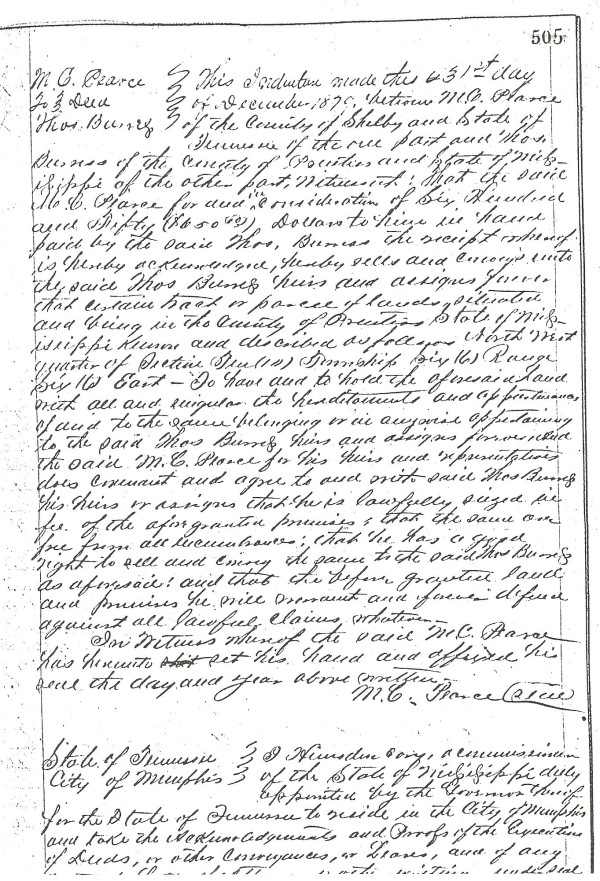 505
M. C. Pearce } This Indenture made this 31st day
To } Deed } of December 1879, between M. C. Pearce
Thos. Burress } of the County of Shelby and State of
Tennessee of the one part and Thos.
Burress of the County of Prentiss and State of Miss-
issippi of the other part, Witnesseth: that the said
M. C. Pearce for and in consideration of Six Hundred
and Fifty ($650 00) Dollars to him in hand
paid by the said Thos. Burress the receipt whereof
is hereby acknowledged, hereby sells and conveys unto
the said Thos Burress heirs and assigns forever
that certain tract or parcel of land situated
and being in the County of Prentiss State of Miss-
issippi known and described as follows North West
quarter of Section Ten (10) Township Six (6) Range
Six (6) East - To have and to hold the aforesaid land
with all and singular the hereditaments and appurtenances
of and to the same belonging or in anywise appertaining
to the said Thos Burress heirs and assigns forever and
the said M. C. Pearce for his heirs and representatives
does covenant and agree to and with said Thos Burress
his heirs or assigns that he is lawfully seized in
fee of the aforegranted premises; that the same are
free from all incumbrances; that he has a good
right to sell and convey the same to the said Thos Burress
as aforesaid; and that the before granted land
and premises he will warrant and forever defend
against all lawful claims whatever
In Witness whereof the said M. C. Pearce
has hereunto set his hand and affixed his
seal the day and year above written
M. C. Pearce (seal)
State of Tennessee } I Humsden Cory, a commissioner
City of Memphis } of the State of Mississippi duly
appointed by the Governor thereof
for the State of Tennessee to reside in the City of Memphis
and take the Acknowledgements and Proofs of the Execution
of Deeds, or other Conveyances, or Leases, and of any
under seal